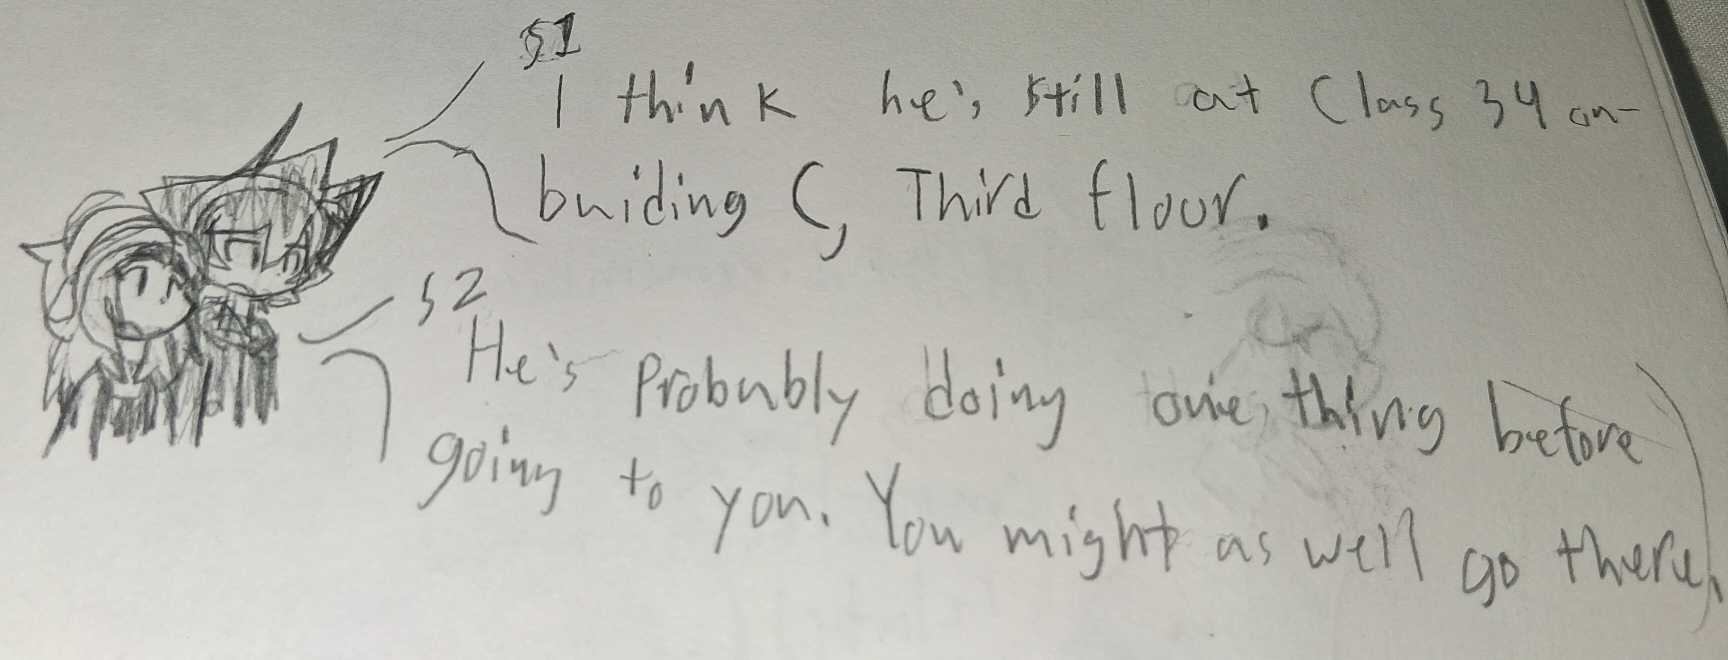 S1
I think he's still at Class 34 on-
buiding C, Third flour.
S2
He's Probably doing one thing before
going to you. You might as well go there,